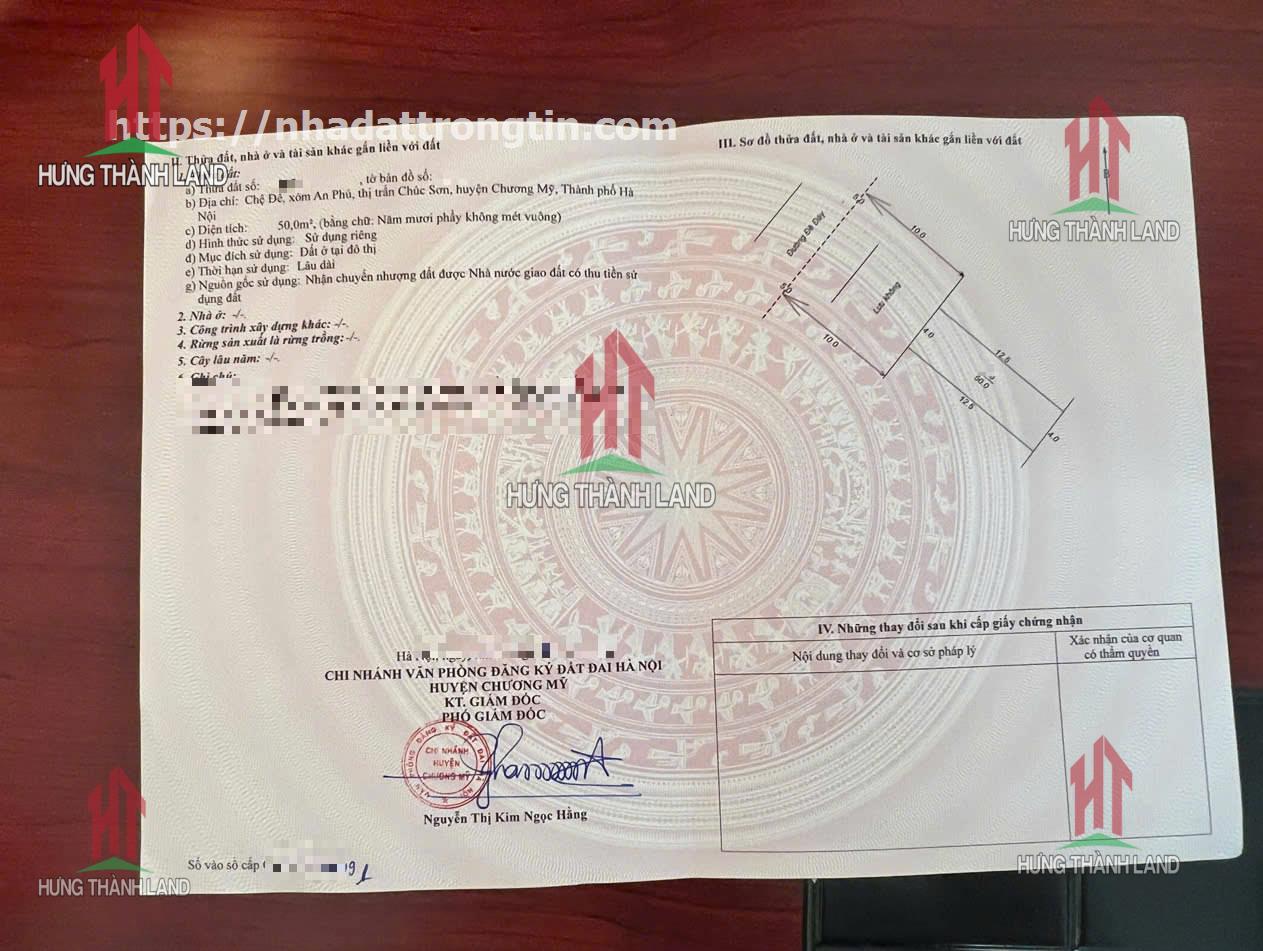 https://nhadattrongtin.com
HƯNG THÀNH LAND
II. Thửa đất, nhà ở và tài sản khác gắn liền với đất
đất:
a) Thửa đất số: , tờ bản đồ số:
b) Địa chỉ: Chệ Đê, xóm An Phú, thị trấn Chúc Sơn, huyện Chương Mỹ, Thành phố Hà
Nội
c) Diện tích: 50,0m², (bằng chữ: Năm mươi phẩy không mét vuông)
d) Hình thức sử dụng: Sử dụng riêng
đ) Mục đích sử dụng: Đất ở tại đô thị
e) Thời hạn sử dụng: Lâu dài
g) Nguồn gốc sử dụng: Nhận chuyển nhượng đất được Nhà nước giao đất có thu tiền sử
dụng đất
2. Nhà ở: -/-.
3. Công trình xây dựng khác: -/-.
4. Rừng sản xuất là rừng trồng: -/-.
5. Cây lâu năm: -/-.
Ghi chú:
HƯNG THÀNH LAND
Hà
CHI NHÁNH VĂN PHÒNG ĐĂNG KÝ ĐẤT ĐAI HÀ NỘI
HUYỆN CHƯƠNG MỸ
KT. GIÁM ĐỐC
PHÓ GIÁM ĐỐC
VĂN PHÒNG ĐĂNG KÝ ĐẤT ĐAI HÀ NỘI
CHI NHÁNH
HUYỆN
CHƯƠNG MỸ
Nguyễn Thị Kim Ngọc Hằng
Số vào sổ cấp
HƯNG THÀNH LAND
III. Sơ đồ thửa đất, nhà ở và tài sản khác gắn liền với đất
B
HƯNG THÀNH LAND
Đường Đê Đáy
10.0
Lưu không
10.0
4.0
12.5
50.0
12.5
4.0
IV. Những thay đổi sau khi cấp giấy chứng nhận
Nội dung thay đổi và cơ sở pháp lý
Xác nhận của cơ quan
có thẩm quyền
HƯNG THÀNH LAND